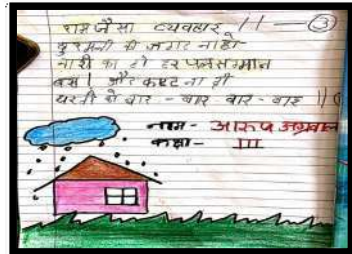 राम जैसा व्यवहार ।। — ③
दुश्मनी की जगह ना हो
नारी का हो हर पल सम्मान
बस । और कष्ट ना दो
धरती को बार - बार - बार - बार ।।
नाम - आरुष अग्रवाल
कक्षा - III